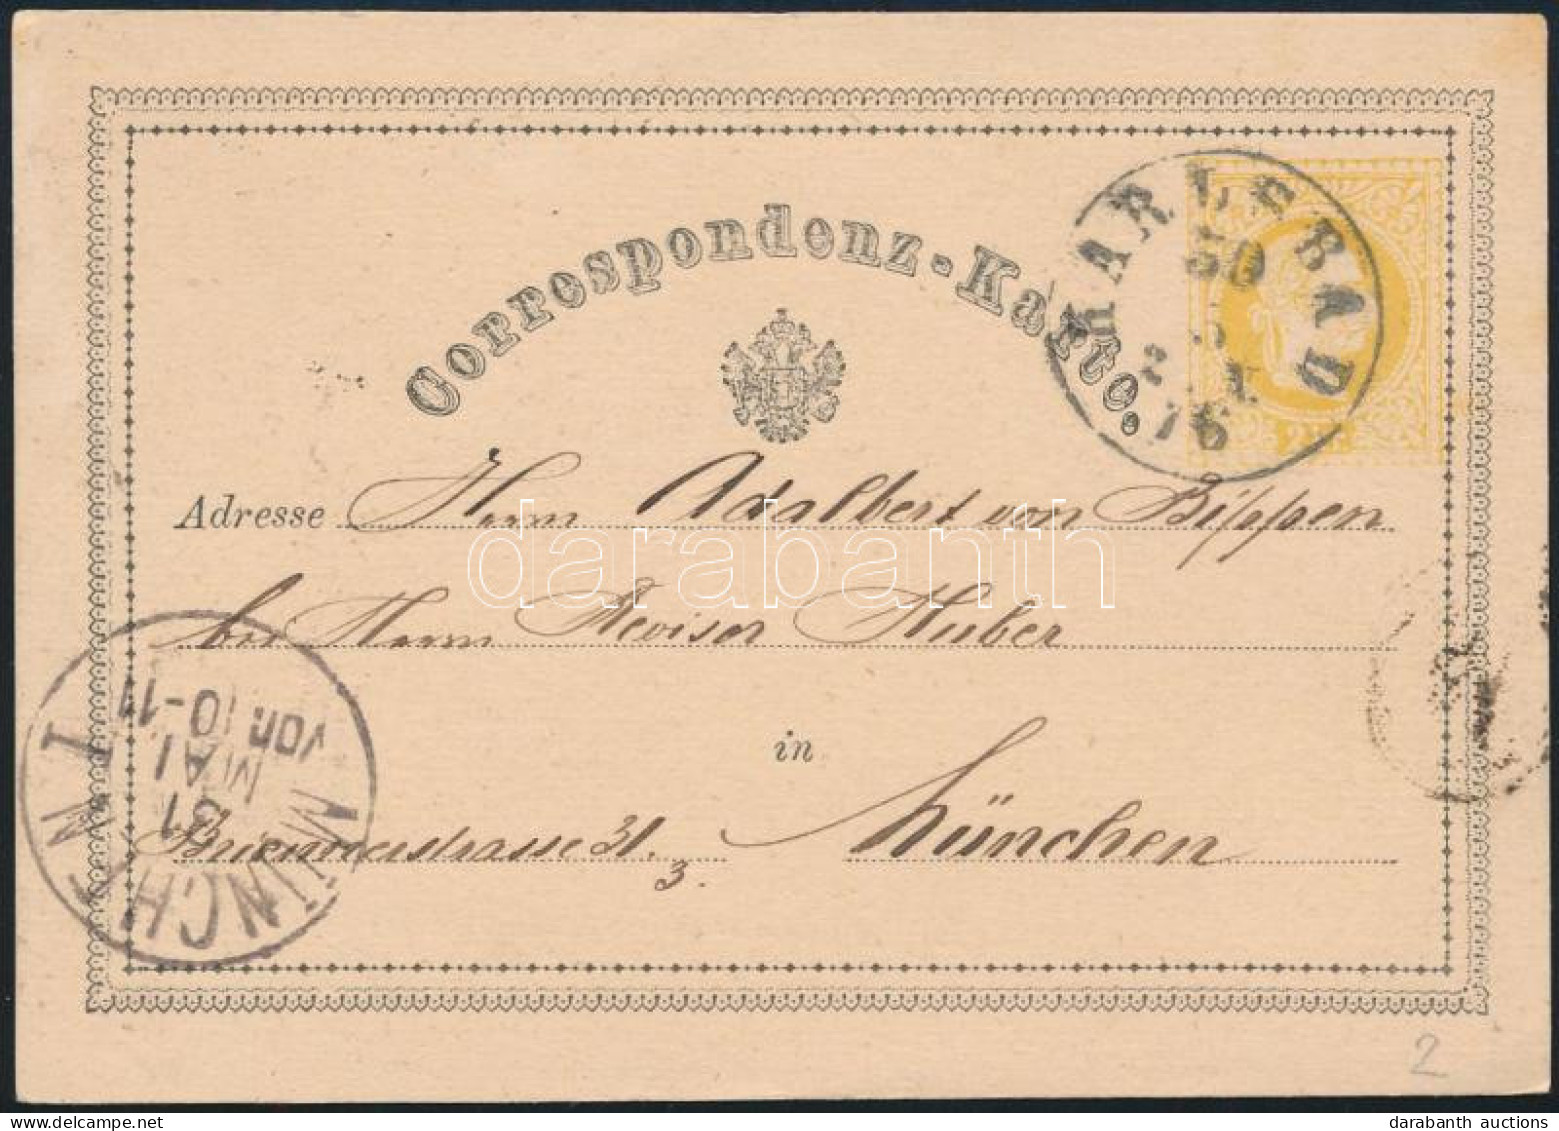 Correspondenz-Karte.
KARLSBAD
30
5
76
2 Kr.
Adresse Herrn Adalbert von Bippen
darabanth
bei Herrn Revisor Huber
MÜNCHEN I
31
MAI
Vor. 10-11
in
Briennerstrasse 31. München
3.
2
darabanth auctions